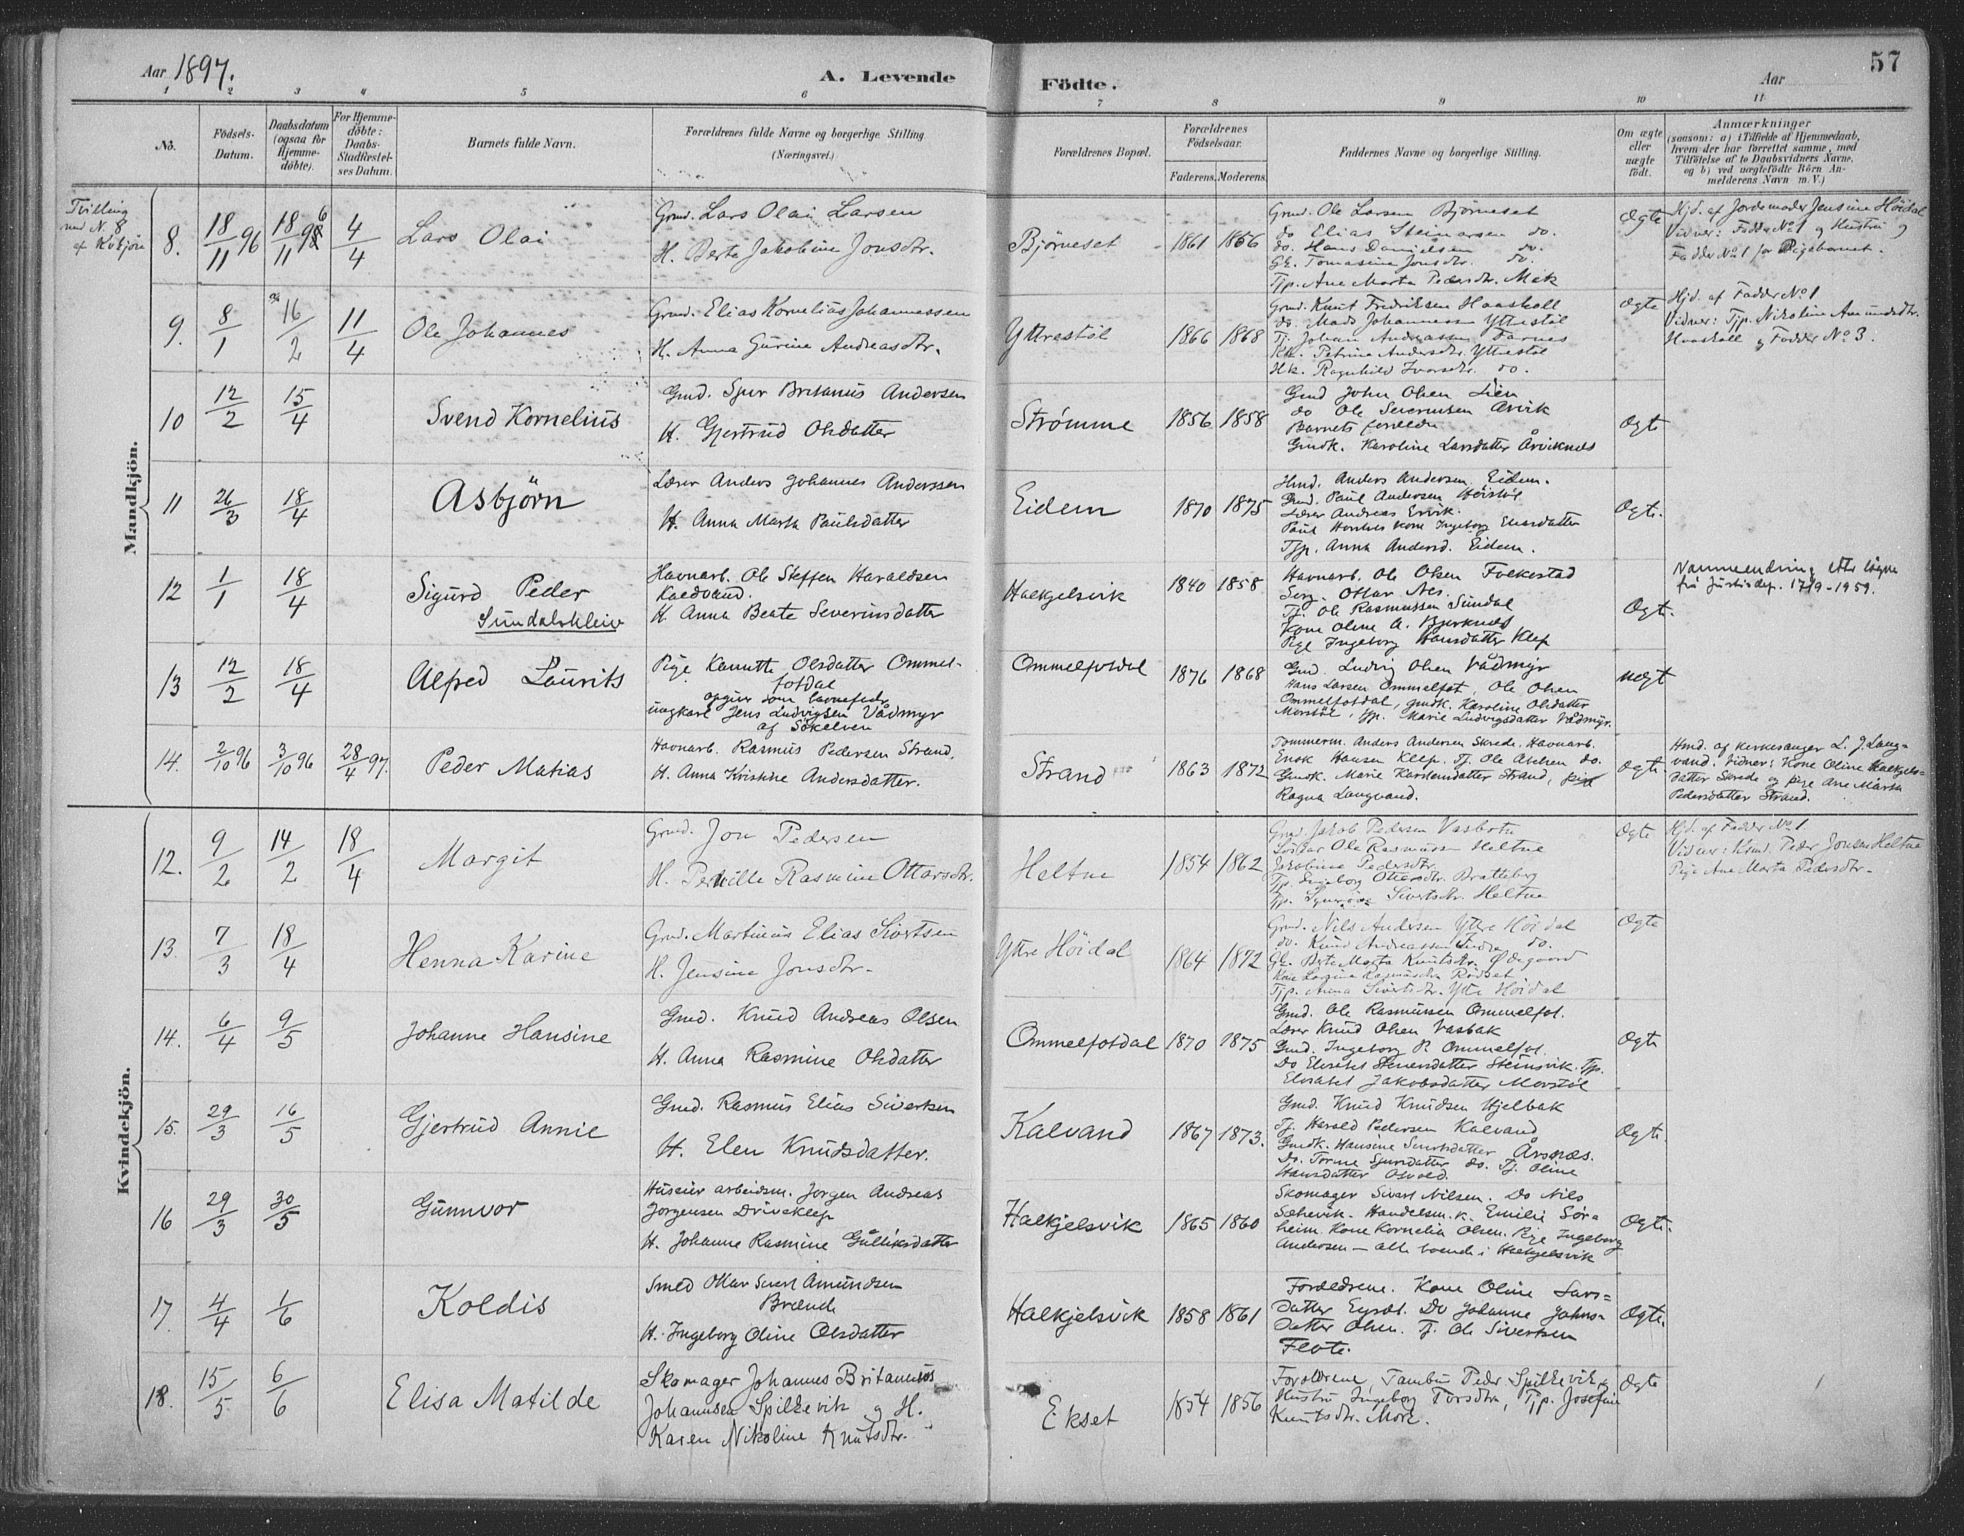 Aar 1897.
A. Levende
Fødte.
Aar
57
1 2 3 4 5 6 7 8 9 10 11
No.
Födsels-Datum.
Daabsdatum (ogsaa for Hjemme-döbte).
For Hjemme-döbte: Daabs-Stadfæstel-ses Datum.
Barnets fulde Navn.
Forældrenes fulde Navne og borgerlige Stilling.
(Næringsvei.)
Forældrenes Bopæl.
Forældrenes Födselsaar.
Faderens. Moderens.
Faddernes Navne og borgerlige Stilling.
Om ægte eller uægte födt.
Anmærkninger
(saasom: a) i Tilfælde af Hjemmedaab, hvem der har forrettet samme, med Tilföielse af to Daabsvidners Navne, og b) ved uægtefödte Börn An-melderens Navn m. V.)
Mandkjön.
Tvilling med N. 8 af Kvkjön
8. 18/11 96 18/11 96 4/4 Lars Olai
Grmd. Lars Olai Larsen
H. Berte Jakobine Jonsdtr.
Bjørneset 1861 1856
Grmd. Ole Larsen Bjørneset
do Elias Steinarsen do.
do. Hans Danielsen do.
Gk. Tomasine Jonsdtr. do.
Tjp. Ane Marta Pedersdtr. Mek
Ægte
Hjd. af Jordemoder Jensine Höidal
Vidner: Fadder No 1 og Hustru og
Fadder No 1 for Pigebarnet.
9. 8/1 16/2 11/4 Ole Johannes
Grmd. Elias Kornelius Johannessen
H. Anna Gurine Andreasdtr.
Yttrestöl 1866 1868
Grmd. Knut Fredriksen Haaskoll
do. Mads Johannessen Yttrestöl
Tj. Johan Andreassen Farnes
Kk. Petrine Andersdtr. Yttestöl
Hk. Ragnhild Ivarsdtr. do.
Ægte
Hjd. af Fadder No 1
Vidner: Tjp. Nikoline Amundsdtr.
Haaskoll og Fadder No 3.
10 12/2 15/4 Svend Kornelius
Gmd. Sjur Britanus Andersen
H. Gjertrud Olsdatter
Strømme 1856 1858
Gmd John Olsen Lien
do Ole Severinsen Arvik
Barnets forældre
Gmdk. Karoline Larsdatter Årviknes
Ægt
11 26/3 18/4 Asbjørn
Lærer Anders Johannes Anderssen
H. Anna Marta Paulsdatter
Eidem 1870 1875
Hmd. Anders Andersen Eidem.
Gmd. Paul Andersen Höistöl
Lærer Andreas Ervik.
Paul Kone Ingeborg Eliasdatter
Tjp. Anna Andersd. Eidem.
Ægt.
12 1/1 18/4 Sigurd Peder
Sundalskleiv
Havnarb. Ole Steffen Haraldsen
Kaldvand.
H. Anna Beate Severinsdatter
Halkjelsvik 1840 1858
Havnarb. Ole Olsen Folkestad
Serg. Ottar Nes.
Tj. Ole Rasmussen Sundal
Kone Oline A. Bjerknes
Pige Ingeborg Hansdatter Klep
Ægt.
Navneendring etter løyve
frå Justisdep. 17/9-1959.
13 12/2 18/4 Alfred Laurits
Pige Kanutte Olsdatter Ommel-
fotdal
opgiver som barnefader
ungkarl Jens Ludvigsen Vådmyr
af Sökelven
Ommelfotdal 1876 1868
Gmd Ludvig Olsen Vådmyr
Hans Larsen Ommelfot, Ole Olsen
Ommelfotdal, gmdk. Karoline Olsdatter
Morstöl, Tjp. Marie Ludvigsdatter Vådmyr.
uægt
14. 2/10 96 3/10 96 28/4 97. Peder Matias
Havnarb. Rasmus Pedersen Strand.
H. Anna Kristine Andersdatter.
Strand 1863 1872
Tömmerm. Anders Andersen Skrede. Havnarb.
Enok Hansen Klep. Tj. Ole Axelsen do.
Gmdk. Marie Karstensdatter Strand, pige
Ragna Langvand.
Ægt.
Hmd. af kirkesanger L. J. Lang-
vand. Vidner: Kone Oline Halkjels-
datter Skrede og pige Ane Marta
Pedersdatter Strand.
Kvindekjön.
12. 9/2 14/2 18/4 Margit
Grmd. Jon Pedersen
H. Pernille Rasmine Ottarsdtr.
Heltne 1854 1862
Grmd. Jakob Pedersen Vasbotn
Ole Rasmussen Heltne
Jakobine Pedersdtr.
Tjp. Ingeborg Ottersdtr. Bratteberg
Tjp. Sivertsdtr. Heltne
Ægte
Hjd. af Fadder No 1.
Vidner: Peder Jonsen Heltne
Pige Ane Marta Pedersdtr.
13. 7/3 18/4 Henna Karine
Grmd. Martinus Elias Sivertsen
H. Jensine Jonsdtr.
Yttre Höidal 1864 1872
Grmd. Nils Andersen Yttre Höidal
do. Knud Andreassen Indre do.
Gk. Berte Marta Knutsdtr. Ödegaard
Kone Rasmusdtr. Rödset
Tjp. Anna Sivertsdtr. Ytre Höidal
Ægte
14. 6/4 9/5 Johanne Hansine
Gmd. Knud Andreas Olsen
H. Anna Rasmine Olsdatter
Ommelfotdal 1870 1875
Gmd. Ole Rasmussen Ommelfot.
Lærer Knud Olsen Vasbak
Gmd. Ingeborg R. Ommelfot
Do Elisabet Steinsvik. Tjp.
Elisabet Jakobsdatter Morstöl
Ægte
15. 29/3 16/5 Gjertrud Annie
Gmd. Rasmus Elias Sivertsen
H. Elen Knudsdatter.
Kalvand 1867 1873.
Gmd. Knud Knudsen Hjelbak
Tj. Harald Pedersen Kalvand
Gmdk. Hansine Sivertsdatter Årsnes.
Do. Torine Sjursdatter do. Tj. Oline
Hansdatter Osvold.
Ægt.
16 29/3 30/5 Gunnvor
Huseier arbeidsm. Jörgen Andreas
Jörgensen Driveklep
H. Johanne Rasmine Gulliksdatter
Halkjelsvik 1865 1860
Skomager Sivert Nilsen. Do Nils
Sæhevik. Handelsm. k. Emilie Sør-
heim. Kone Kornelia Olsen. Pige Ingeborg
Andersen – alle boende i Halkjelsvik
Ægt.
17. 4/4 1/6 Koldis
Smed Ottar Sivert Amundsen
Brænde
H. Ingeborg Oline Olsdatter
Halkjelsvik 1858 1861
Forældrene. Kone Oline Lars-
datter Eyset. Do Johanne Johns-
datter Olsen. Tj. Ole Sivertsen
Flote.
Ægte.
18. 15/5 6/6 Elisa Matilde
Skomager Johannes Britanus
Johannsen Spilkevik og H.
Karen Nikoline Knutsdtr.
Ekset 1854 1856
Forældrene, Tambur Peder Spilkevik,
Hustru Ingeborg Torsdtr, Tjp. Josefine
Knutsdtr. More.
Ægte